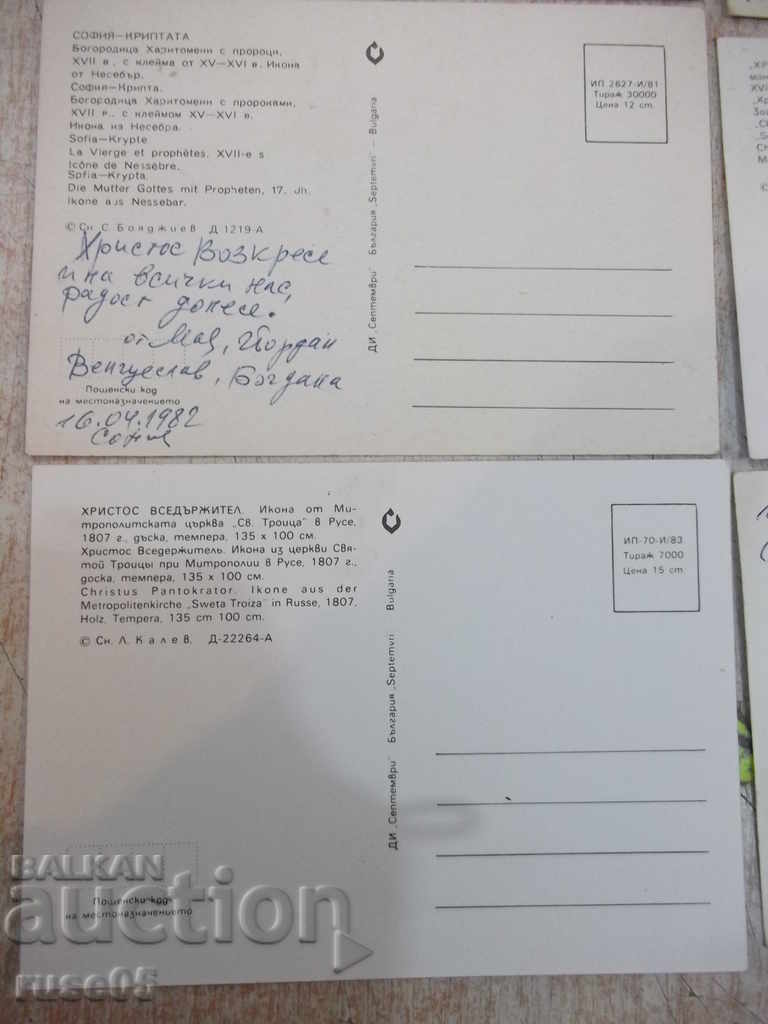 СОФИЯ—КРИПТАТА
Богородица Харитомени с пророци,
XVII в. с клейма от XV—XVI в. Икона
от Несебър.
София—Крипта.
Богородица Харитомени с пророками,
XVII в., с клеймом XV—XVI в.
Икона из Несебра.
Sofia—Krypte
La Vierge et prophètes, XVII-e s
Icône de Nessèbre.
Sofia—Krypta.
Die Mutter Gottes mit Propheten, 17. Jh.
Ikone aus Nessebar.
© Сн. С. Бояджиев Д 1219-А
Христос Возкресе
и на всички нас,
радост донесе.
от Йордан
Венцеслав, Богдана
Пощенски код
на местоназначението
16.04.1982
ДИ „Септември" България „Septemvri" — Bulgaria
ИП 2627-И/81
Тираж 30000
Цена 12 ст.
ХРИСТОС ВСЕДЪРЖИТЕЛ. Икона от Ми-
трополитската църква „Св. Троица" в Русе,
1807 г., дъска, темпера, 135 x 100 см.
Христос Вседержитель. Икона из церкви Свя-
той Троицы при Митрополии в Русе, 1807 г.,
доска, темпера, 135 x 100 см.
Christus Pantokrator. Ikone aus der
Metropolitenkirche „Sweta Troiza" in Russe, 1807,
Holz, Tempera, 135 cm 100 cm.
© Сн. Л. Калев, Д-22264-А
ДИ „Септември" България „Septemvri" Bulgaria
ИП-70-И/83
Тираж 7000
Цена 15 ст.
Пощенски код
на местоназначението
BALKAN
auction
ruse05